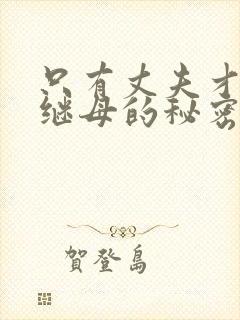 只有丈夫才
继母的秘密
賀登島